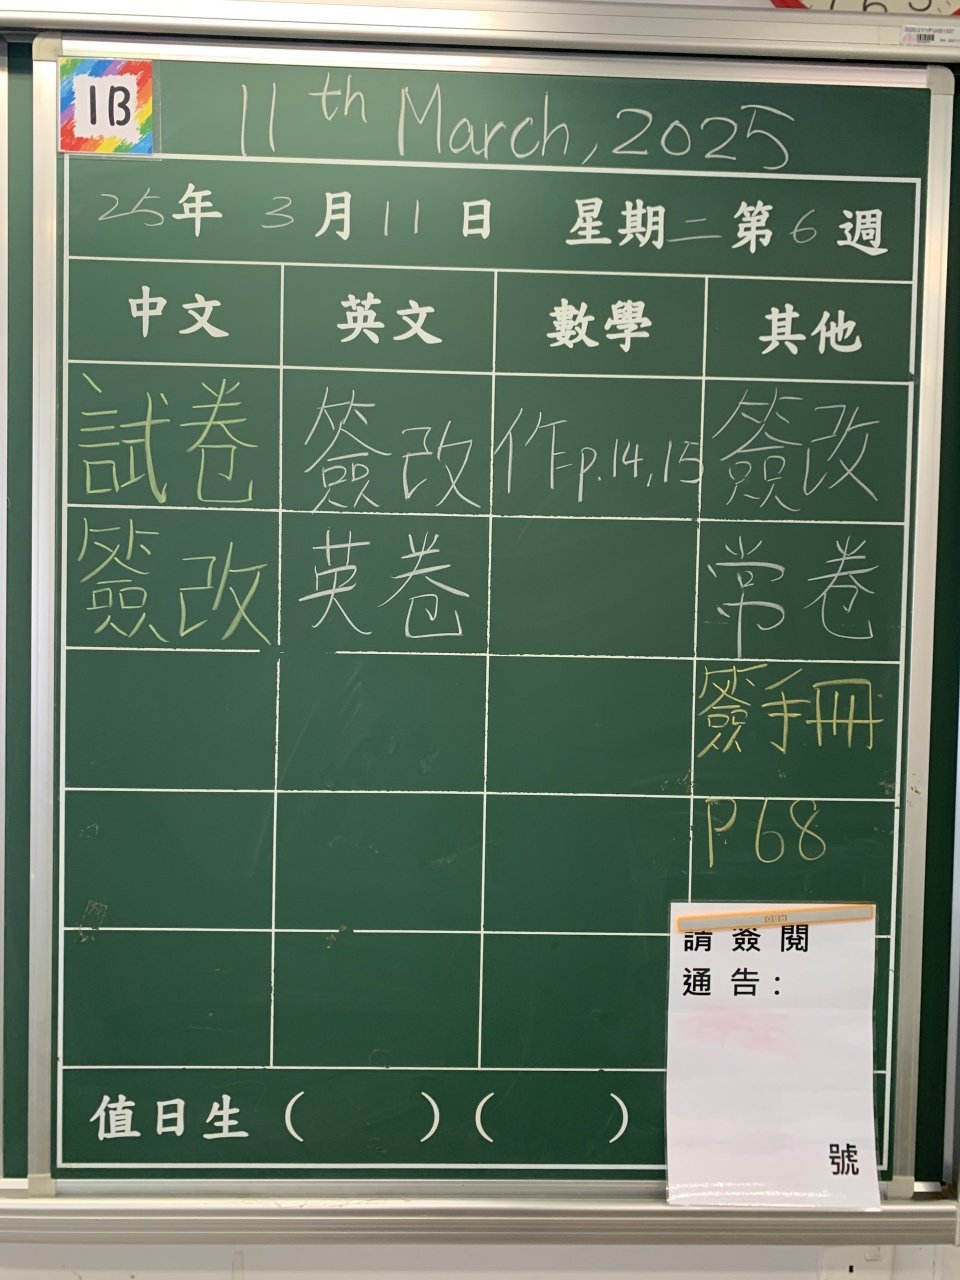 1B
11th March, 2025
25年 3月11日 星期二第6週
中文 英文 數學 其他
試卷 簽改 作p.14,15 簽改
簽改 英卷 常卷
簽手冊
P68
請簽閱
通告:
號
值日生( )( )